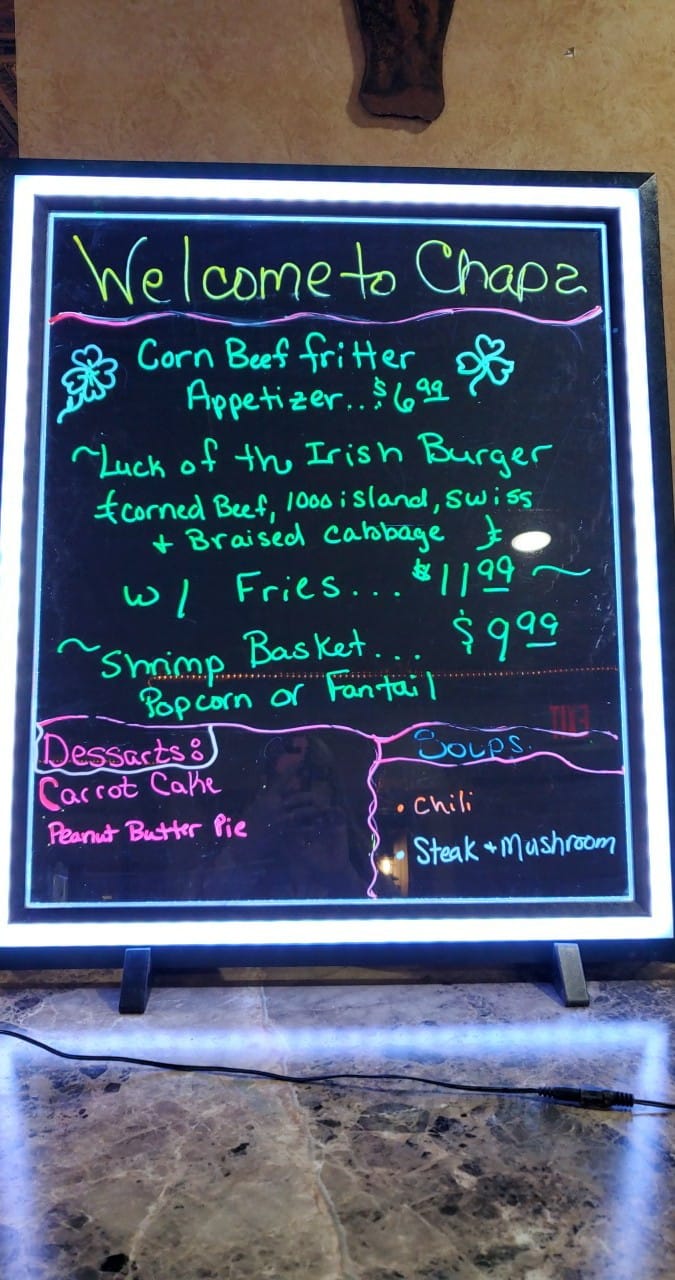 Welcome to Chaps
Corn Beef fritter
Appetizer.. $6.99
~Luck of the Irish Burger
{corned Beef, 1000 island, swiss
+ Braised cabbage }
w/ Fries... $11.99 ~
~Shrimp Basket... $9.99
Popcorn or Fantail
Dessarts:
Carrot Cake
Peanut Butter Pie
Soups
• Chili
• Steak + Mushroom
EXIT